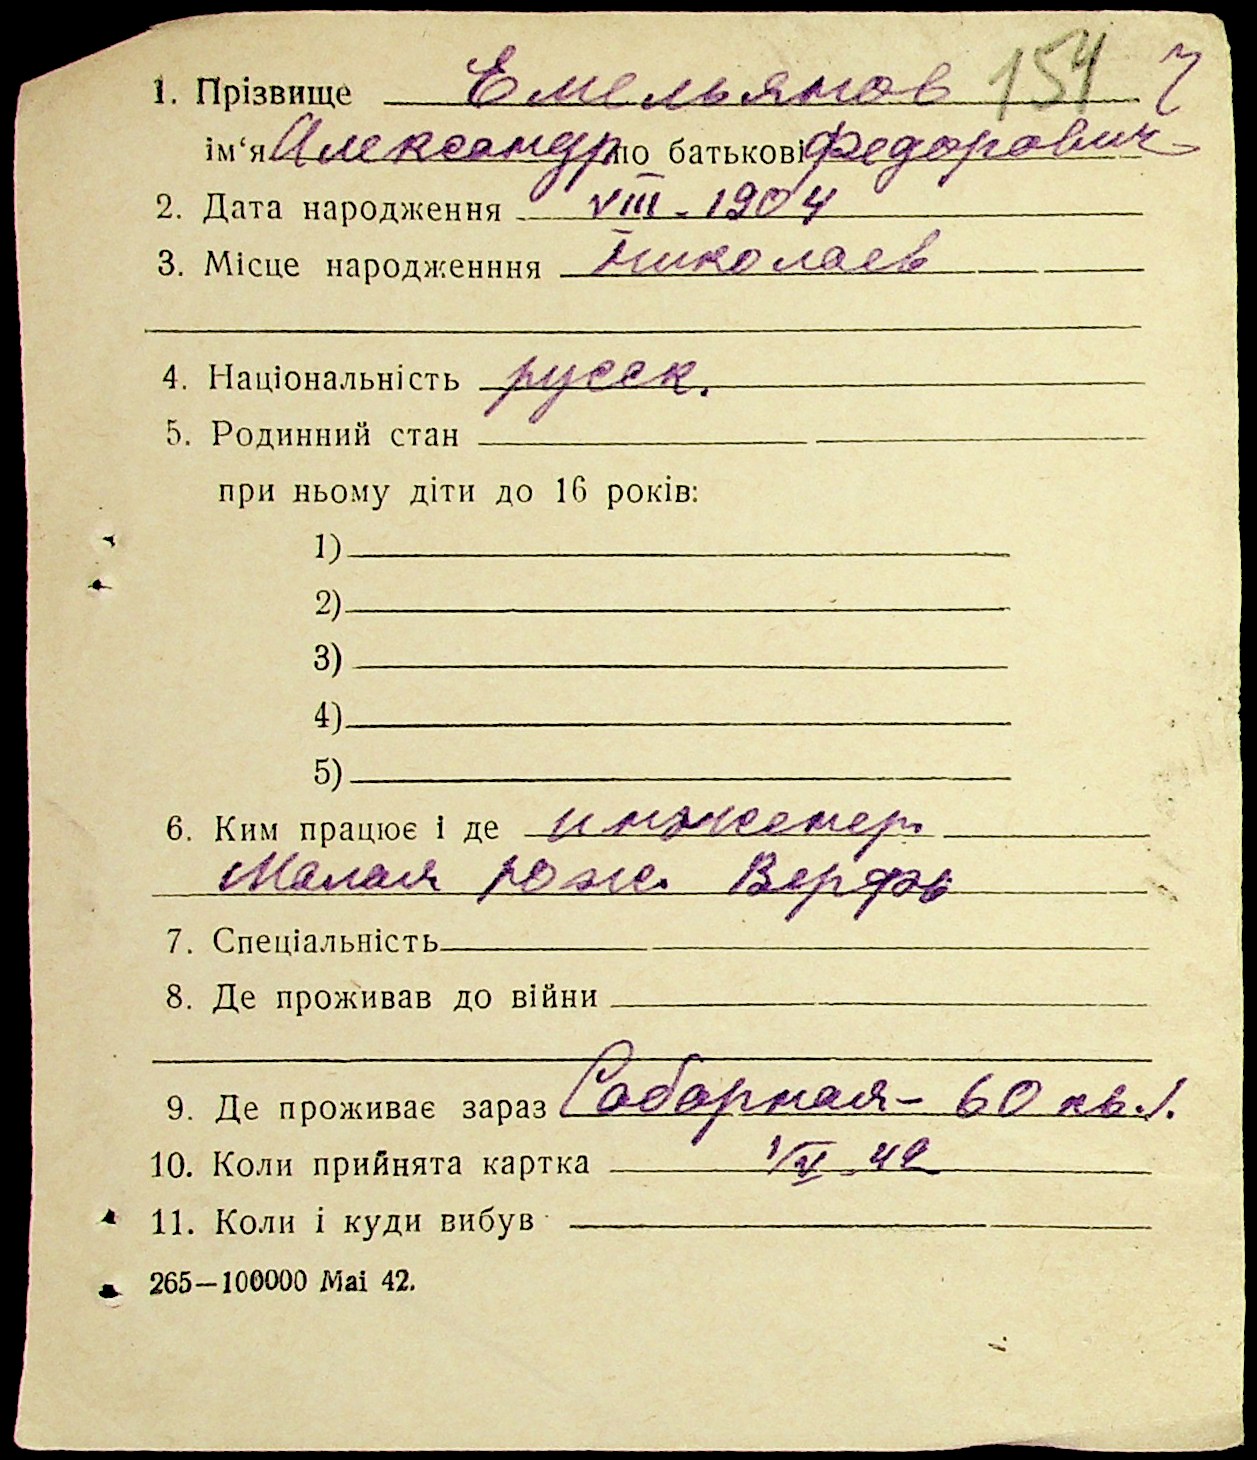 1. Прізвище Емельянов 154 ч
ім‘я Александр по батькові Федорович
2. Дата народження VIII - 1904
3. Місце народженння Николаев
4. Національність русск.
5. Родинний стан
при ньому діти до 16 років:
1)
2)
3)
4)
5)
6. Ким працює і де инженер.
Малая Юж. Верфь
7. Спеціальність
8. Де проживав до війни
9. Де проживає зараз Соборная - 60 кв.1.
10. Коли прийнята картка 1/VI 42
11. Коли і куди вибув
265—100000 Mai 42.